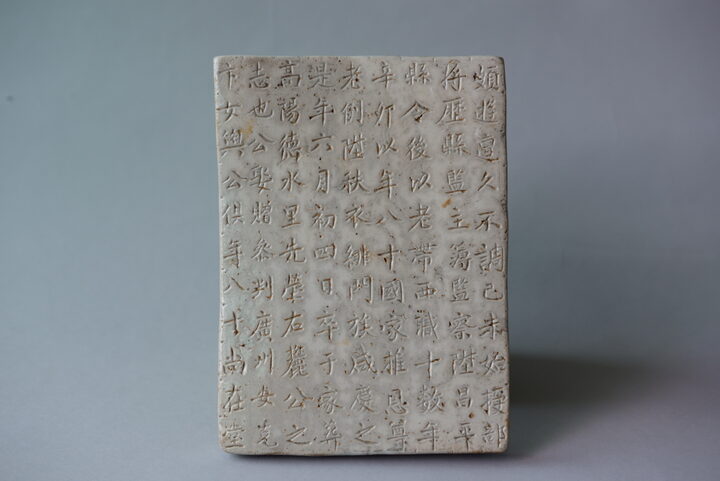 遊宦久不調己未始授部
将歷縣監主簿監察陞昌平
縣令後以老帶西職十数年
辛夘以年八十國家推恩尊
老例陞秩衣緋門族咸慶之
是年六月初四日卒于家葬
高陽德水里先塋右麓公之
志也公娶贈參判廣州安克
卞女與公俱年八十尚在堂